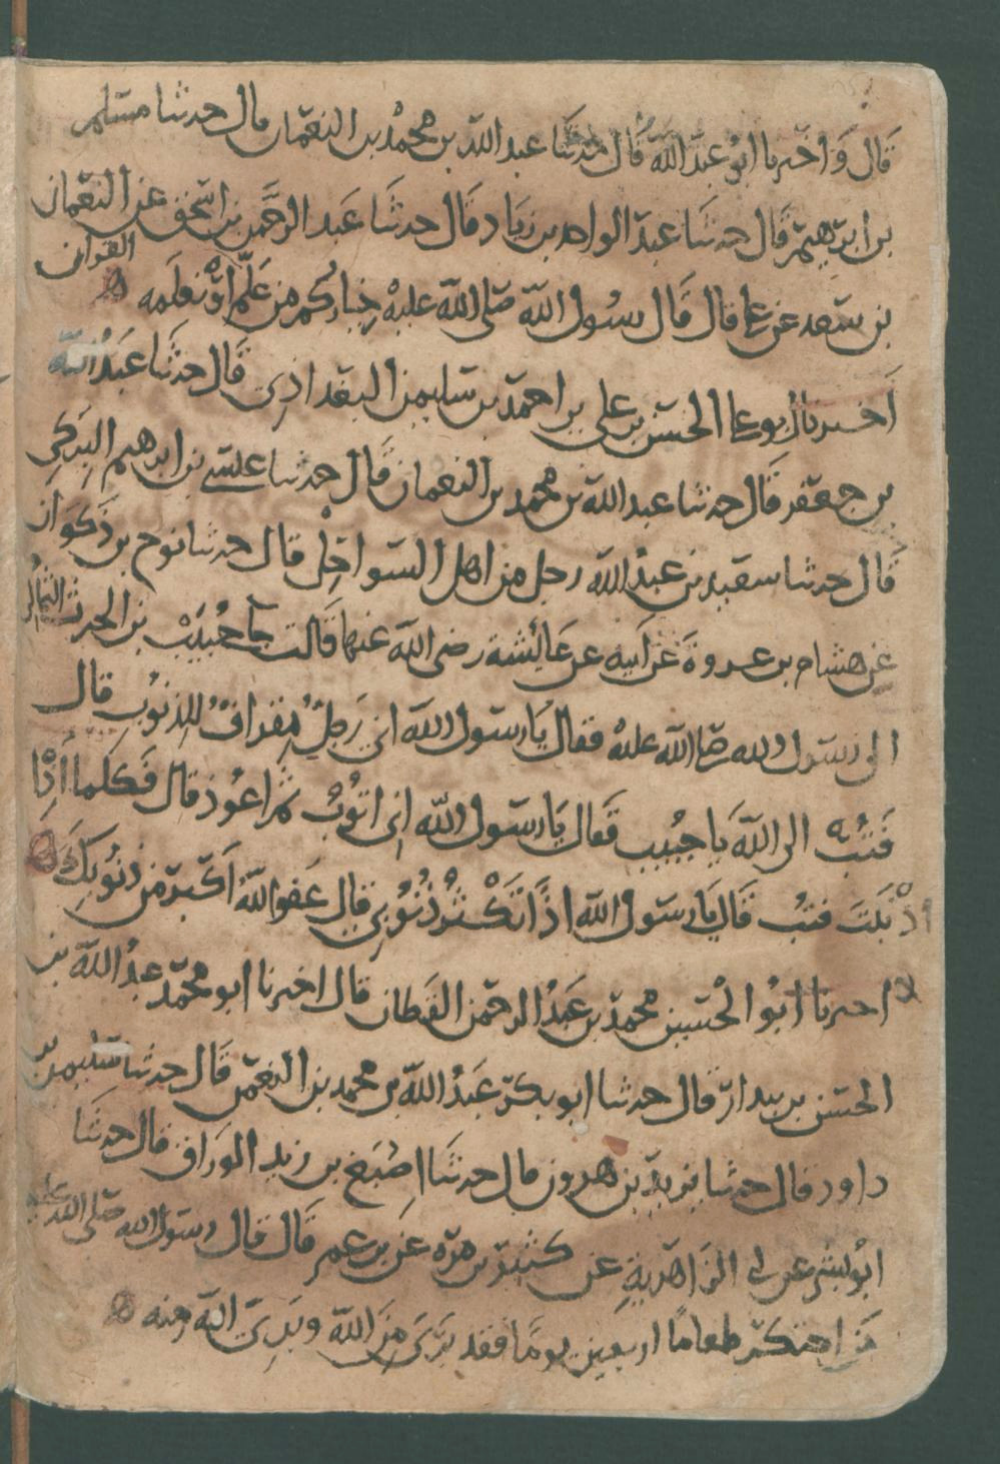 قال واخبرنا ابو عبد الله قال حدثنا عبد الله بن محمد بن النعمان قال حدثنا مسلم
بن ابرهيم قال حدثنا عبد الواحد بن زياد قال حدثنا عبد الرحمن بن اسحق عن النعمان
بن سعد عن علي قال قال رسول الله صلى الله عليه خياركم من علم او تعلمه القران
اخبرنا ابو علي الحسن بن علي بن احمد بن سليمن البغدادي قال حدثنا عبد الله
بن جعفر قال حدثنا عبد الله بن محمد بن النعمان قال حدثنا عيسى بن ابرهيم البركي
قال حدثنا سعيد بن عبد الله رجل من اهل السواحل قال حدثنا نوح بن ذكوان
عن هشام بن عروة عن ابيه عن عائشة رضي الله عنها قالت جا حبيب بن الحرث
الى رسول الله صلى الله عليه فقال يا رسول الله اني رجل مقراف للذنوب قال
فتب الى الله يا حبيب فقال يا رسول الله اني اتوب ثم اعود قال فكلما اذا
اذنبت فتب قال يا رسول الله اذا تكثر ذنوبي قال عفو الله اكبر من ذنوبك
اخبرنا ابو الحسين محمد بن عبد الرحمن القطان قال اخبرنا ابو محمد عبد الله بن
الحسن بن بندار قال حدثنا ابو بكر عبد الله بن محمد بن النعمن قال حدثنا سليمن بن
داود قال حدثنا يزيد بن هرون قال حدثنا اصبغ بن زيد الوراق قال حدثنا
ابو بشر عن ابي الزاهرية عن كثير بن مرة عن بن عمر قال قال رسول الله صلى الله عليه
من احتكر طعاما اربعين يوما فقد بري من الله وبري الله منه